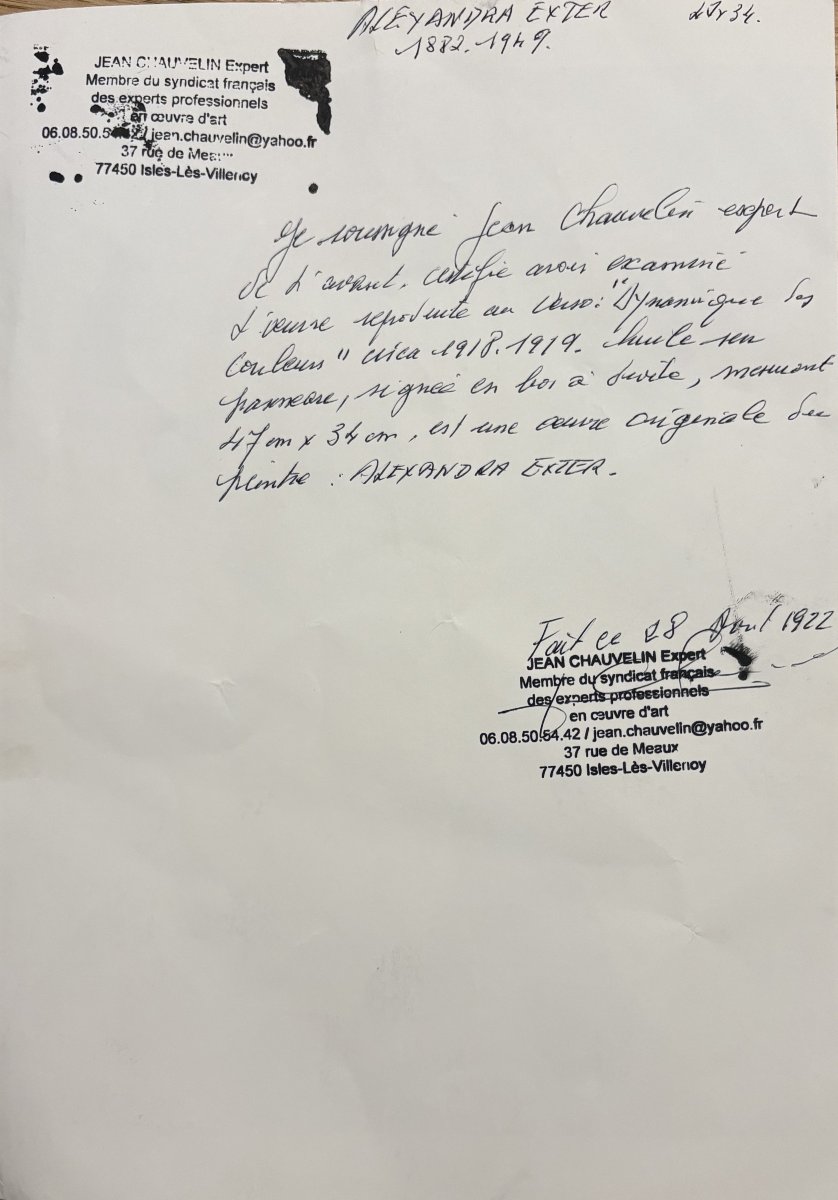 ALEXANDRA EXTER
1882.1949.
JEAN CHAUVELIN Expert
Membre du syndicat français
des experts professionnels
en œuvre d'art
06.08.50.54.42 / jean.chauvelin@yahoo.fr
37 rue de Meaux
77450 Isles-Lès-Villenoy
Je soussigné Jean Chauvelin expert
certifie avoir examiné
l'œuvre reproduite au verso: "Dynamique des
Couleurs" circa 1918.1919. huile sur
panneau, signée en bas à droite, mesurant
47 cm x 34 cm, est une œuvre originale du
peintre : ALEXANDRA EXTER.
Fait ce 28 Août 1922
JEAN CHAUVELIN Expert
Membre du syndicat français
des experts professionnels
en œuvre d'art
06.08.50.54.42 / jean.chauvelin@yahoo.fr
37 rue de Meaux
77450 Isles-Lès-Villenoy